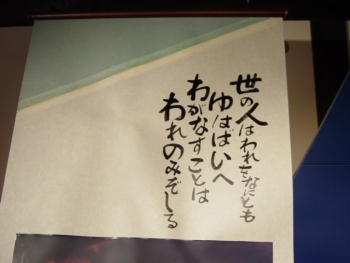 世の人はわれをなにとも
ゆはばいへ
わがなすことは
われのみぞしる